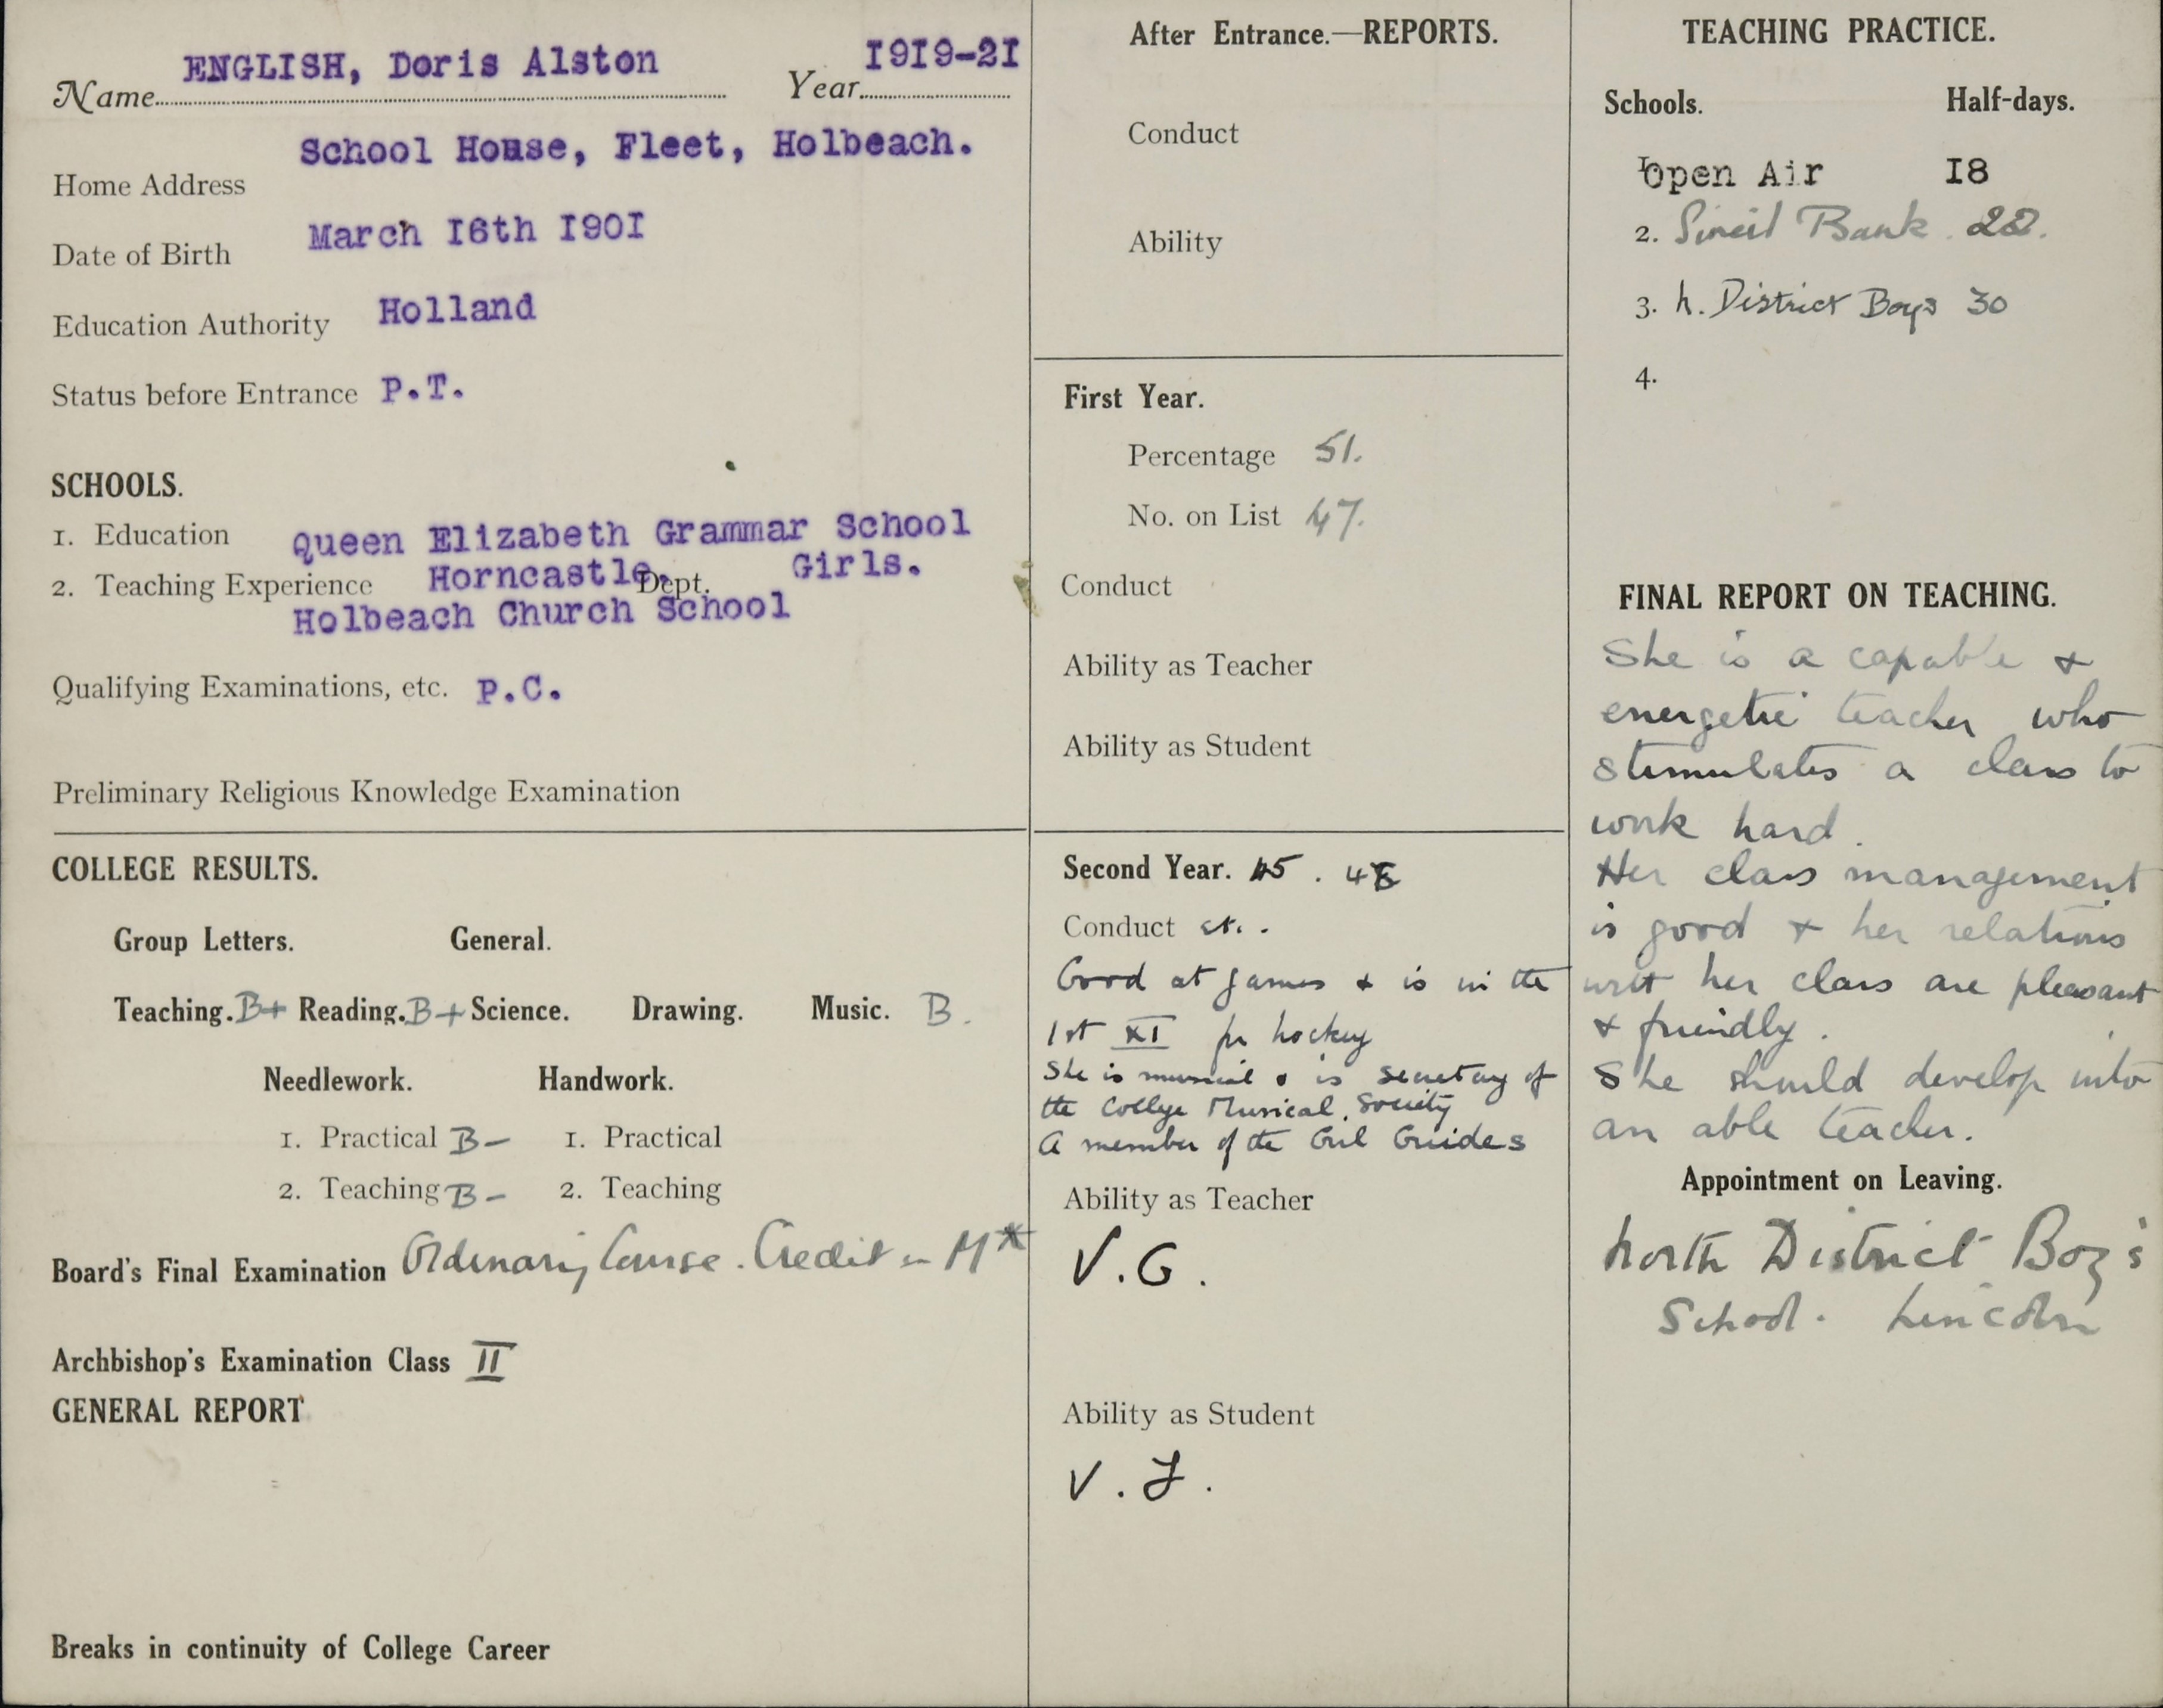 Name ENGLISH, Doris Alston Year 1919-21
Home Address School House, Fleet, Holbeach.
Date of Birth March 16th 1901
Education Authority Holland
Status before Entrance P.T.
SCHOOLS.
1. Education Queen Elizabeth Grammar School
Horncastle. Girls.
2. Teaching Experience Dept.
Holbeach Church School
Qualifying Examinations, etc. P.C.
Preliminary Religious Knowledge Examination
COLLEGE RESULTS.
Group Letters. General.
Teaching. B+ Reading. B+ Science. Drawing. Music. B.
Needlework. Handwork.
1. Practical B- 1. Practical
2. Teaching B- 2. Teaching
Board's Final Examination Ordinary Course. Credit in M*
Archbishop's Examination Class II
GENERAL REPORT
Breaks in continuity of College Career
After Entrance.—REPORTS.
Conduct
Ability
First Year.
Percentage 51.
No. on List 47.
Conduct
Ability as Teacher
Ability as Student
Second Year. 45.
Conduct etc.
Good at games & is in the
1st XI for hockey
She is musical & is secretary of
the College Musical Society
A member of the Girl Guides
Ability as Teacher
V.G.
Ability as Student
V.F.
TEACHING PRACTICE.
Schools. Half-days.
Open Air 18
2. Sincil Bank
3. N. District Boys 30
4.
FINAL REPORT ON TEACHING.
She is a capable &
energetic teacher who
stimulates a class to
work hard.
Her class management
is good & her relations
with her class are pleasant
& friendly.
She should develop into
an able teacher.
Appointment on Leaving.
North District Boy's
School. Lincoln